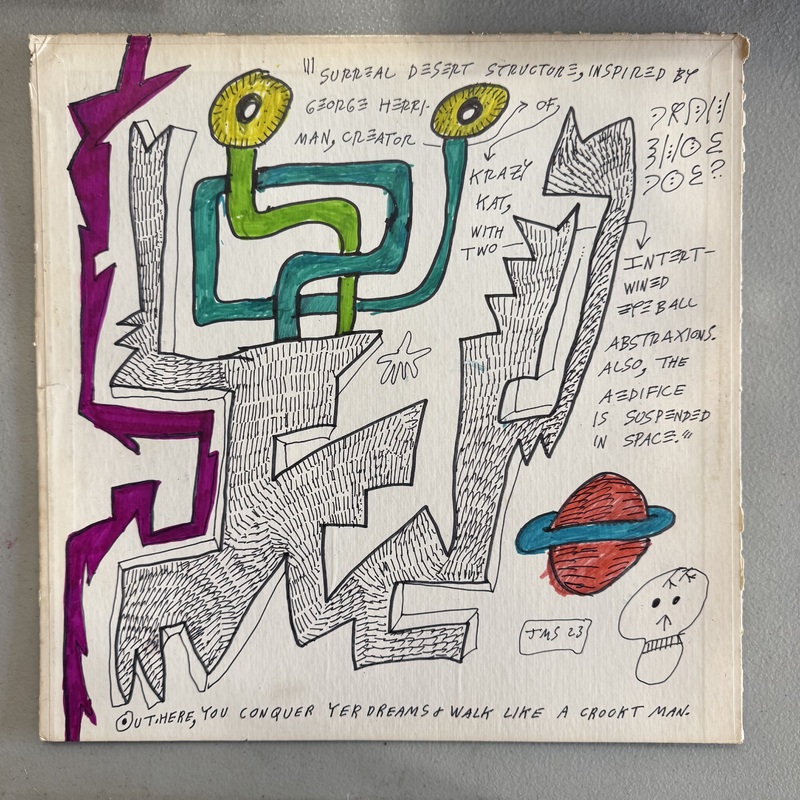 "SURREAL DESERT STRUCTURE, INSPIRED BY
GEORGE HERRI-
MAN, CREATOR OF,
KRAZY
KAT,
WITH
TWO
INTERT-
WINED
EYEBALL
ABSTRAXIONS.
ALSO, THE
AEDIFICE
IS SUSPENDED
IN SPACE."
JMS 23
OUT HERE, YOU CONQUER YER DREAMS & WALK LIKE A CROOKT MAN.